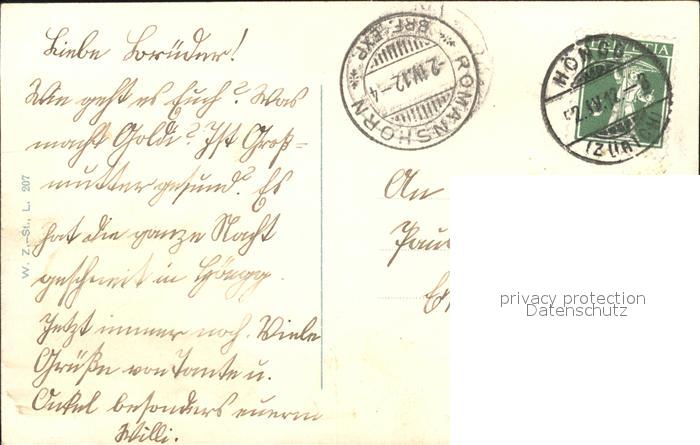 Liebe Brüder!
Wie geht es Euch? Was
macht Goldi? Ist Groß-
mutter gesund? Es
hat die ganze Nacht
geschneit in Höngg.
Jetzt immer noch. Viele
Grüße von Tante u.
Onkel besonders euerm
Willi.
W. Z.-St., L. 207
ROMANSHORN
BRF. EXP.
-2.IV.12.-4
HELVETIA
HÖNGG
2.IV.12.
(ZÜRICH)
An
privacy protection
Datenschutz